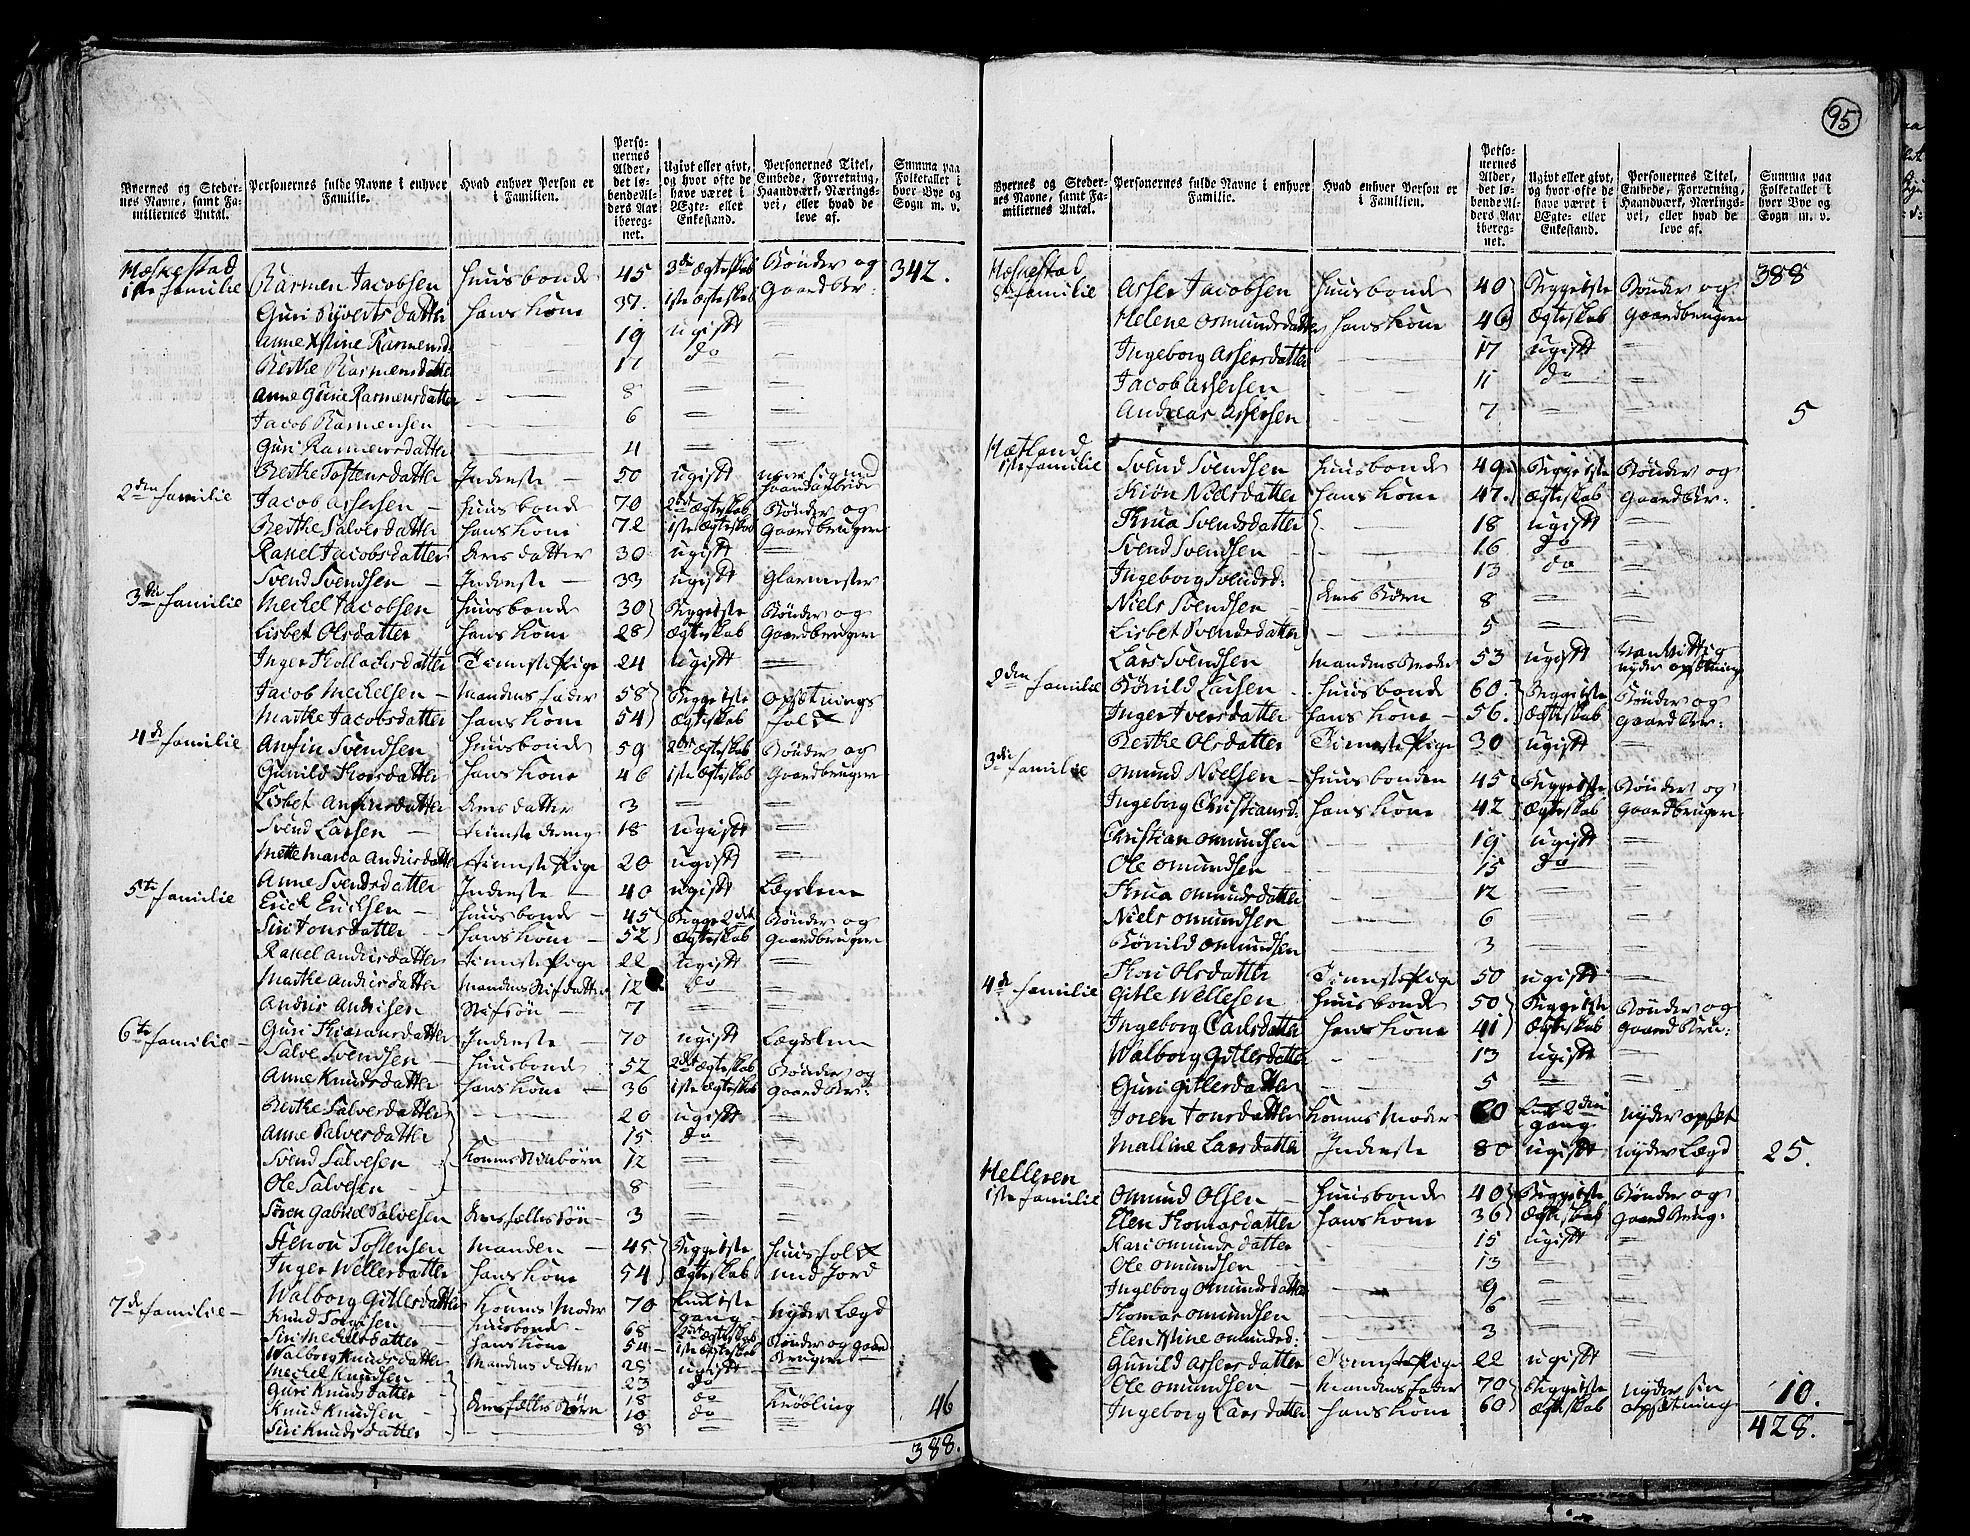 95
Byernes og Steder-nes Navne, samt Fa-miliernes Antal.
Personernes fulde Navne i enhver Familie.
Hvad enhver Person er i Familien.
Perso-nernes Alder, det lø-bende Al-ders Aar iberegnet.
Ugivt eller givt, og hvor ofte de have været i Ægte- eller Enkestand.
Personernes Titel, Embede, Forretning, Haandværk, Nærings-vei, eller hvad de leve af.
Summa paa Folketallet i hver Bye og Sogn m. v.
Heskestad
1ste familie Rasmen Jacobsen Huusbonde 45 3de Ægteskab Bønder og 342.
Guri Syvertsdatter Hans Kone 37. 1ste Ægteskab Gaardbr:
Anne Xstine Rasmensd: — 19 ugift =
Berthe Rasmensdatter — 17 do =
Anne Gurie Rasmensdatter — 8 = =
Jacob Rasmensen — 6 = =
Guri Rasmensdatter — 4 = =
Berthe Tostensdatter Inderste — 50 ugift
2den familie Jacob Assersen — Huusbonde 70 2det Ægteskab Bønder og
Berthe Salvesdatter Hans Kone 72 1ste Ægteskab Gaardbruger
Rakel Jacobsdatter Deres datter 30 ugift =
Svend Svendsen — Inderste — 33 ugift Glarmester
3de familie Mechel Jacobsen Huusbonde 30 Beggeiste Bønder og
Lisbet Olsdatter Hans Kone 28 Ægteskab Gaardbruger
Inger Thollachsdatter Tienneste Pige 24 ugift =
Jacob Mechelsen — Mandens Fader 58 Beggeiste Opsetnings
Marthe Jacobsdatter Hans Kone 54 Ægteskab folk
4de familie Anfin Svendsen Huusbonde 59 2det Ægteskab Bønder og
Gunild Thorsdatter Hans Kone 46 1ste Ægteskab Gaardbruger
Lisbet Anfinsdatter Deres datter 3 = =
Svend Larsen — tieneste dreng 18 ugift =
Mette Maria Andersdatter tieneste Pige 20 ugift =
Anne Svendsdatter Inderste — 40 ugift Lægslem
5te familie Erick Ericksen — Huusbonde — 45 Begge 2det Bønder og
Siri Tonsdatter — Hans Kone — 52 Ægteskab Gaardbruger
Rakel Andersdatter tieneste Pige 22 ugift =
Marthe Andersdatter Mandens Stifdatter 12 do =
Andris Andrisen — Stifsøn — 7 = =
Guri Thiesensdatter Inderste — 70 ugift Lægslem
6te familie — Salve Svendsen — Huusbonde 52 2det Ægteskab Bønder og
Anne Knudsdatter Hans Kone — 36 1ste Ægteskab Gaardbr:
Berthe Salvesdatter 20 ugift =
Anne Salvesdatter 15 do =
Svend Salvesen — Konens Stifbørn 12 = =
Ole Salvesen — 8 = =
Søren Gabriel Salvesen Deres fælles Søn — 3 = =
Stenou Tostensen Manden — 45 Beggeiste Huusfolk
Inger Wellesdatter Hans Kone 54 Ægteskab med Jord
Walborg Gitlesdatter Konens Moder 70 Enke iste gang Nyder Lægd
7de familie — Knud Torrisen — Huusbonde — 68 2det Ægteskab
Siri Mechelsdatter — Hans Kone 54 — 1ste Ægteskab Bønder og Gaard
Walborg Knudsdatter Mandens datter 28 ugift Bruger
Mechel Knudsen — 23 do =
Guri Knudsdatter 18 do Krøbling
Knud Knudsen — Deres fælles Børn 10 do =
Siri Knudsdatter — 8 = = 46
388.
Byernes og Steder-nes Navne, samt Fa-miliernes Antal.
Personernes fulde Navne i enhver Familie.
Hvad enhver Person er i Familien.
Perso-nernes Alder, det lø-bende Al-ders Aar iberegnet.
Ugivt eller givt, og hvor ofte de have været i Ægte- eller Enkestand.
Personernes Titel, Embede, Forretning, Haandværk, Nærings-vei, eller hvad de leve af.
Summa paa Folketallet i hver Bye og Sogn m. v.
Heskestad
8de familie Asser Jacobsen Huusbonde 40 Beggeiste Bønder og 388
Helene Osmundsdatter Hans Kone 46 Ægteskab Gaardbruger
Ingeborg Assersdatter — 17 ugift =
Jacob Assersen — 11 do =
Andreas Assersen — 7 = = 5
Hetland
1ste familie Svend Svendsen Huusbonde 49 Beggeiste Bønder og
Kiøn Nielsdatter Hans Kone 47. Ægteskab Gaardbr:
Thrua Svendsdatter — 18 ugift =
Svend Svendsen — 16 do =
Ingeborg Svendsd: — 13 do =
Niels Svendsen — Deres Børn 8 = =
Lisbet Svendsdatter — 5 = =
Lars Svendsen Mandens Broder 53 ugift Vanvittig nyder opsetning
2den familie Bønild Larsen — Huusbonde 60 Beggeiste Bønder og
Inger Iversdatter Hans Kone — 56. Ægteskab Gaardbr:
Berthe Olsdatter Tieneste Pige 30 ugift =
3die familie Omund Nielsen — Huusbonden 45 Beggeiste Bønder og
Ingeborg Christiansd: Hans Kone 42 Ægteskab Gaardbruger
Christian Omundsen — 19 ugift =
Ole Omundsen — 15 do =
Thrua Omundsdatter 12 = =
Niels Omundsen — 6 = =
Bønild Omundsen — 3 = =
Thori Olsdatter Tieneste Pige 50 ugift =
4de familie Gitle Wellesen Huusbonde 50 Beggeiste Bønder og
Ingeborg Carlsdatter Hans Kone 41 Ægteskab Gaardbru:
Walborg Gitlesdatter — 13 ugift =
Guri Gitlesdatter — 5 = =
Joren Tonsdatter Konens Moder 60 Enke 2den gang Nyder opset
Malline Larsdatter Inderste 80 ugift Nyder Lægd 25.
Helleren
1ste familie Omund Olsen — Huusbonde 40 Beggeiste Bønder og
Elen Thomasdatter Hans Kone 36 Ægteskab Gaardbrug:
Kari Omundsdatter — 15 ugift =
Ole Omundsen — 13 = =
Ingeborg Omundsdatter 9 = =
Thomas Omundsen — 6 = =
Elen Xstine Omundsd: — 3 = =
Gunild Assersdatter Tieneste Pige 22 ugift =
Ole Omundsen — Mandens Fader 70 Beggeiste Nyder sin
Ingeborg Larsdatter Hans Kone 60 Ægteskab opsetning 10.
428.